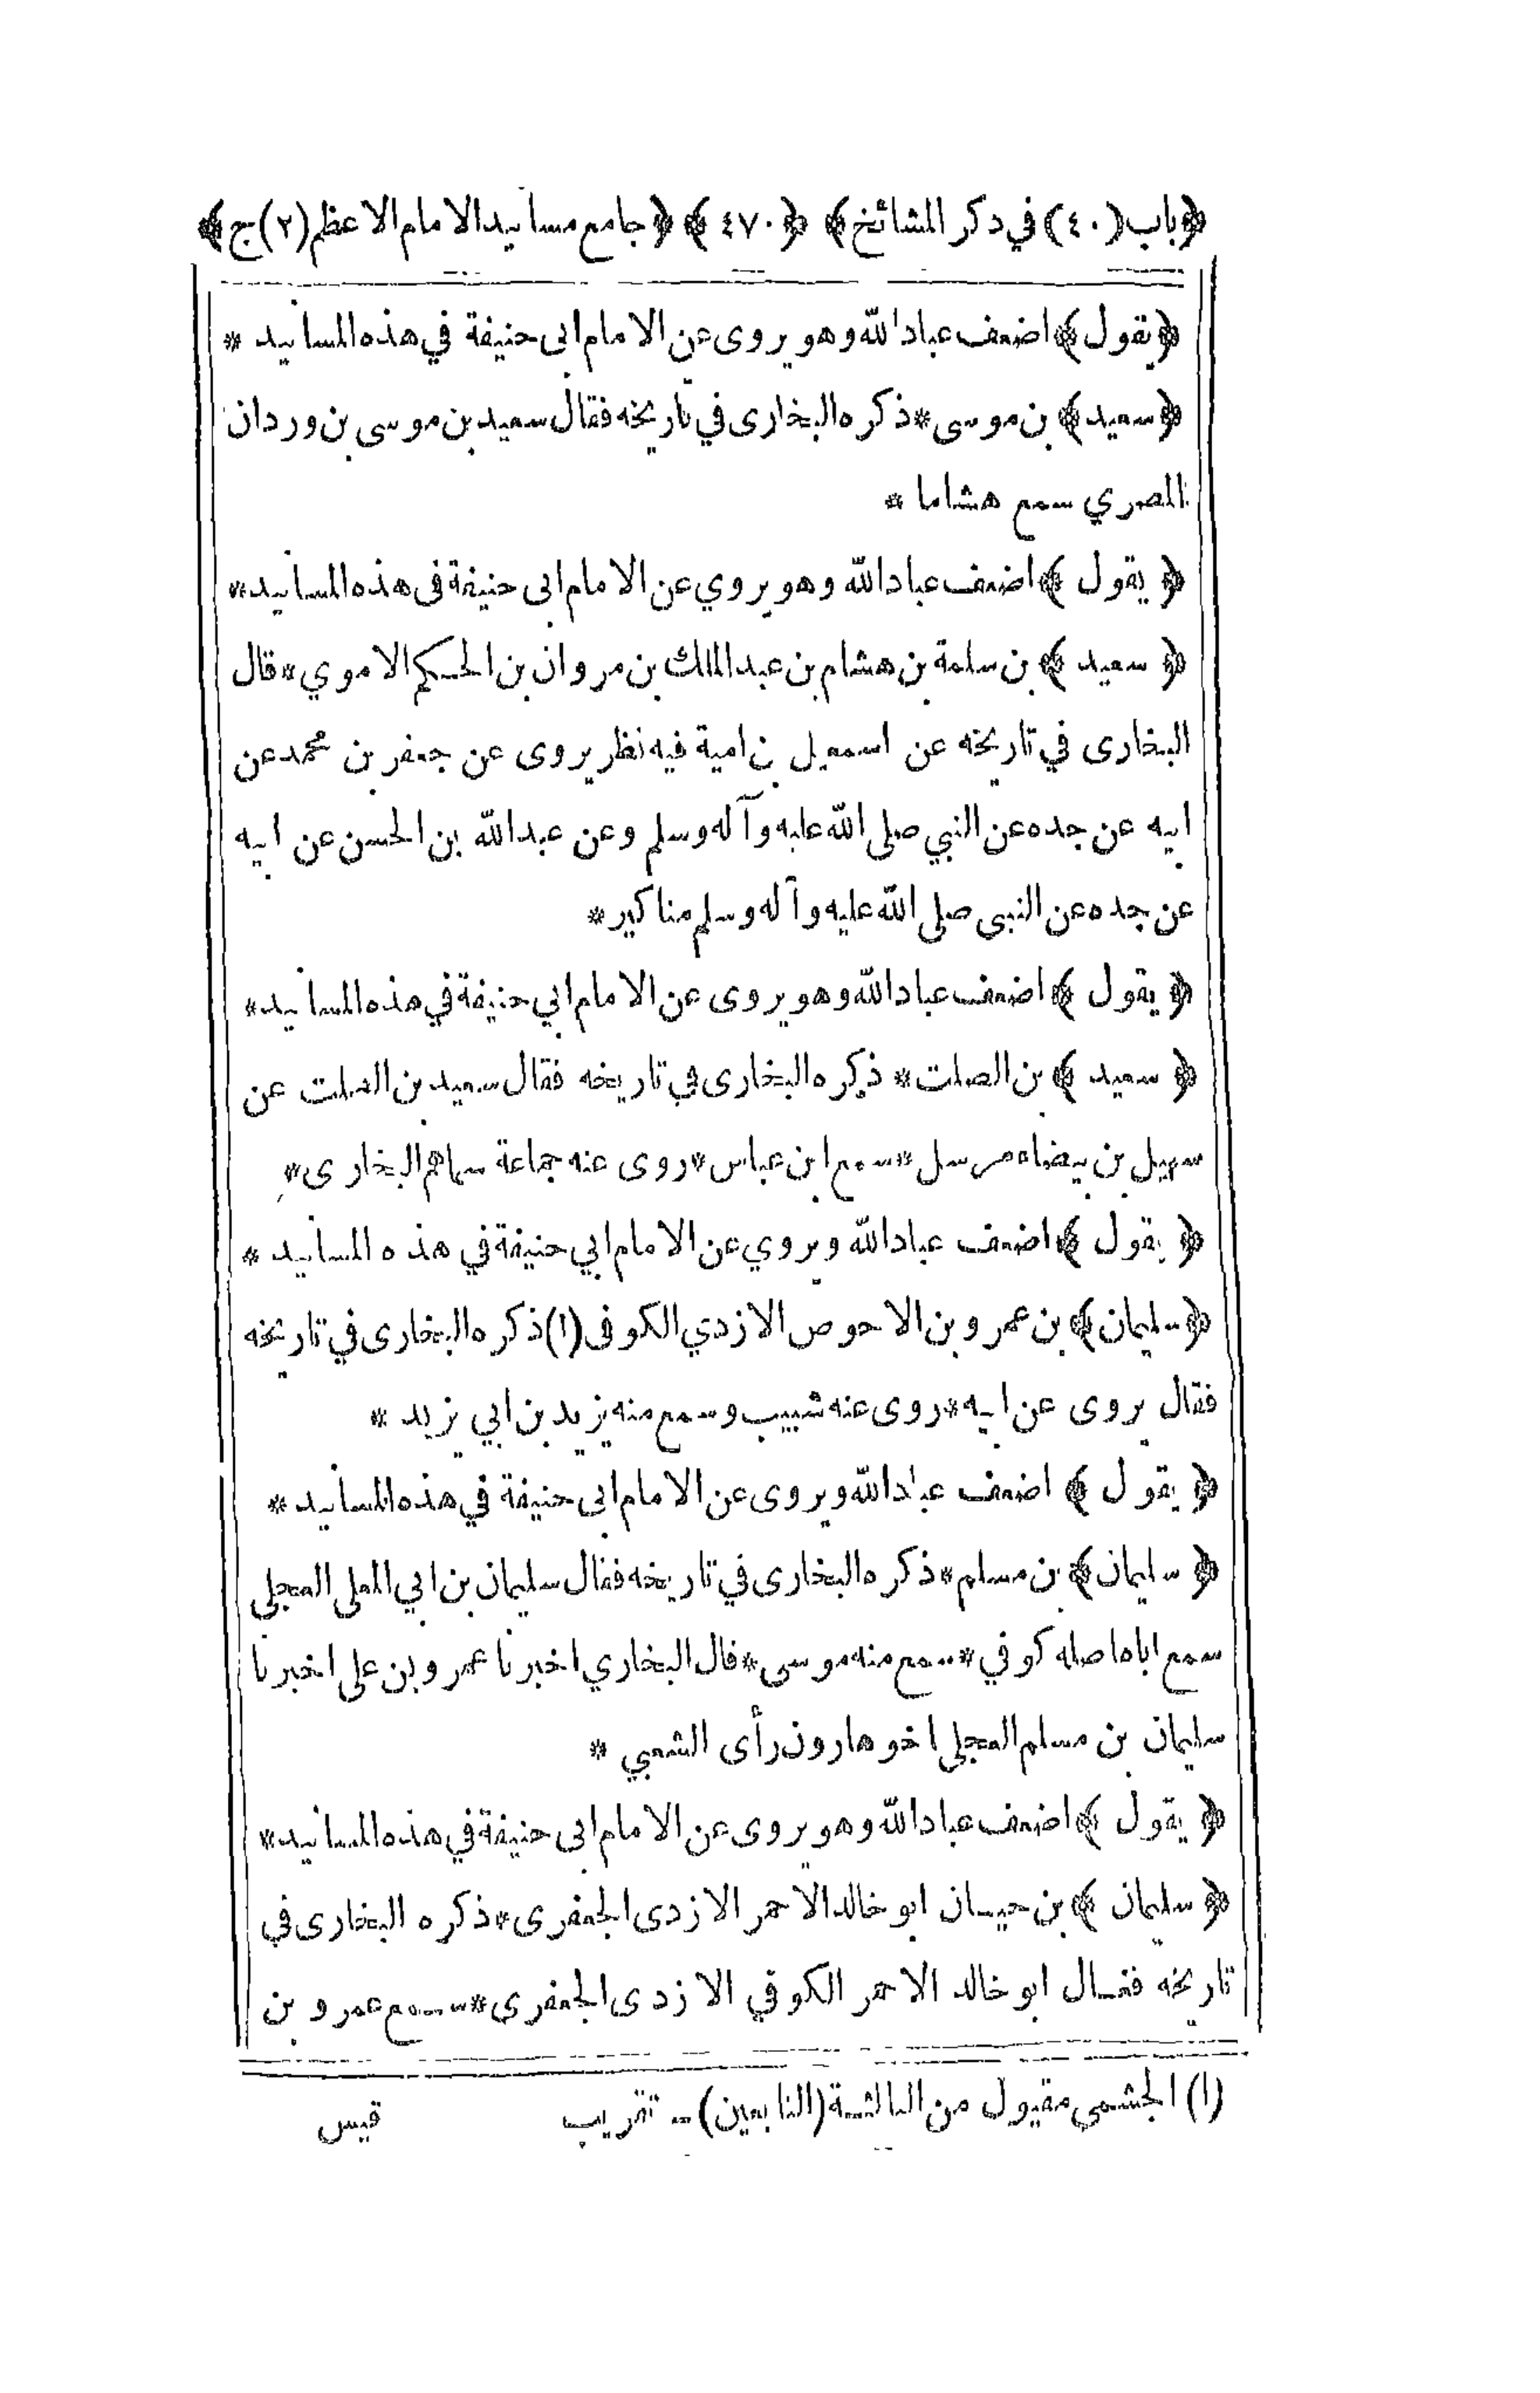 ﴿باب (٤٠) في ذكر المشائخ﴾ ﴿٤٧٠﴾ ﴿جامع مسانيد الامام الاعظم (٢) ج﴾
﴿يقول﴾ اضعف عباد الله وهو يروى عن الامام ابى حنيفة في هذه المسانيد *
﴿سعيد﴾ بن موسى * ذكره البخارى في تاريخه فقال سعيد بن موسى بن وردان
المصري سمع هشاما *
﴿يقول﴾ اضعف عباد الله وهو يروي عن الامام ابى حنيفة فى هذه المسانيد *
﴿سعيد﴾ بن سلمة بن هشام بن عبد الملك بن مروان بن الحكم الاموي * قال
البخارى في تاريخه عن اسمعيل بن امية فيه نظر يروى عن جعفر بن محمد عن
ابيه عن جده عن النبي صلى الله عليه وآله وسلم وعن عبد الله بن الحسن عن ابيه
عن جده عن النبي صلى الله عليه وآله وسلم مناكير *
﴿يقول﴾ اضعف عباد الله وهو يروى عن الامام ابي حنيفة في هذه المسانيد *
﴿سعيد﴾ بن الصلت * ذكره البخارى في تاريخه فقال سعيد بن الصلت عن
سهيل بن بيضاء مرسل * سمع ابن عباس * روى عنه جماعة سماهم البخارى *
﴿يقول﴾ اضعف عباد الله ويروي عن الامام ابي حنيفة في هذه المسانيد *
﴿سليمان﴾ بن عمرو بن الاحوص الازدي الكوفى (١) ذكره البخارى في تاريخه
فقال يروى عن ابيه * روى عنه شبيب وسمع منه يزيد بن ابي يزيد *
﴿يقول﴾ اضعف عباد الله ويروى عن الامام ابى حنيفة في هذه المسانيد *
﴿سليمان﴾ بن مسلم * ذكره البخارى في تاريخه فقال سليمان بن ابي المعلى العجلي
سمع اباه اصله كوفي * سمع منه موسى * قال البخاري اخبرنا عمرو بن على اخبرنا
سليمان بن مسلم العجلى اخو هارون رأى الشعبي *
﴿يقول﴾ اضعف عباد الله وهو يروى عن الامام ابى حنيفة في هذه المسانيد *
﴿سليمان﴾ بن حيان ابو خالد الاحمر الازدى الجعفرى * ذكره البخارى في
تاريخه فقال ابو خالد الاحمر الكوفي الازدى الجعفرى * سمع عمرو بن
(١) الجشمى مقبول من الثالثة (التابعين) - تقريب
قيس